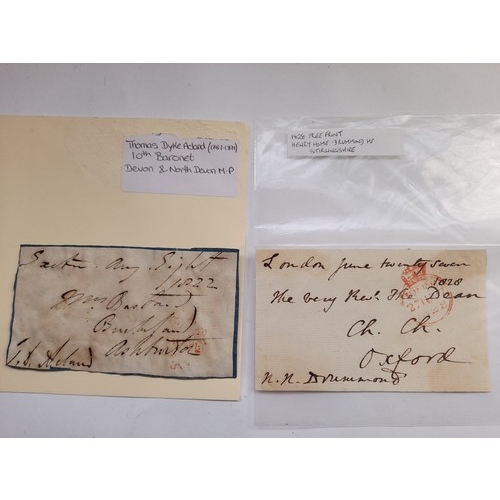 Thomas Dyke Acland (1787-1871)
10th Baronet
Devon & North Devon M.P
Exeter Aug Eight
1822
Mrs Bastard
Buckland
Ashburton
T. D. Acland
FREE FRONT
HENRY HOME DRUMMOND MP
STIRLINGSHIRE
London June twenty seven
1828
The Very Revd. The Dean
Ch. Ch.
Oxford
H. H. Drummond